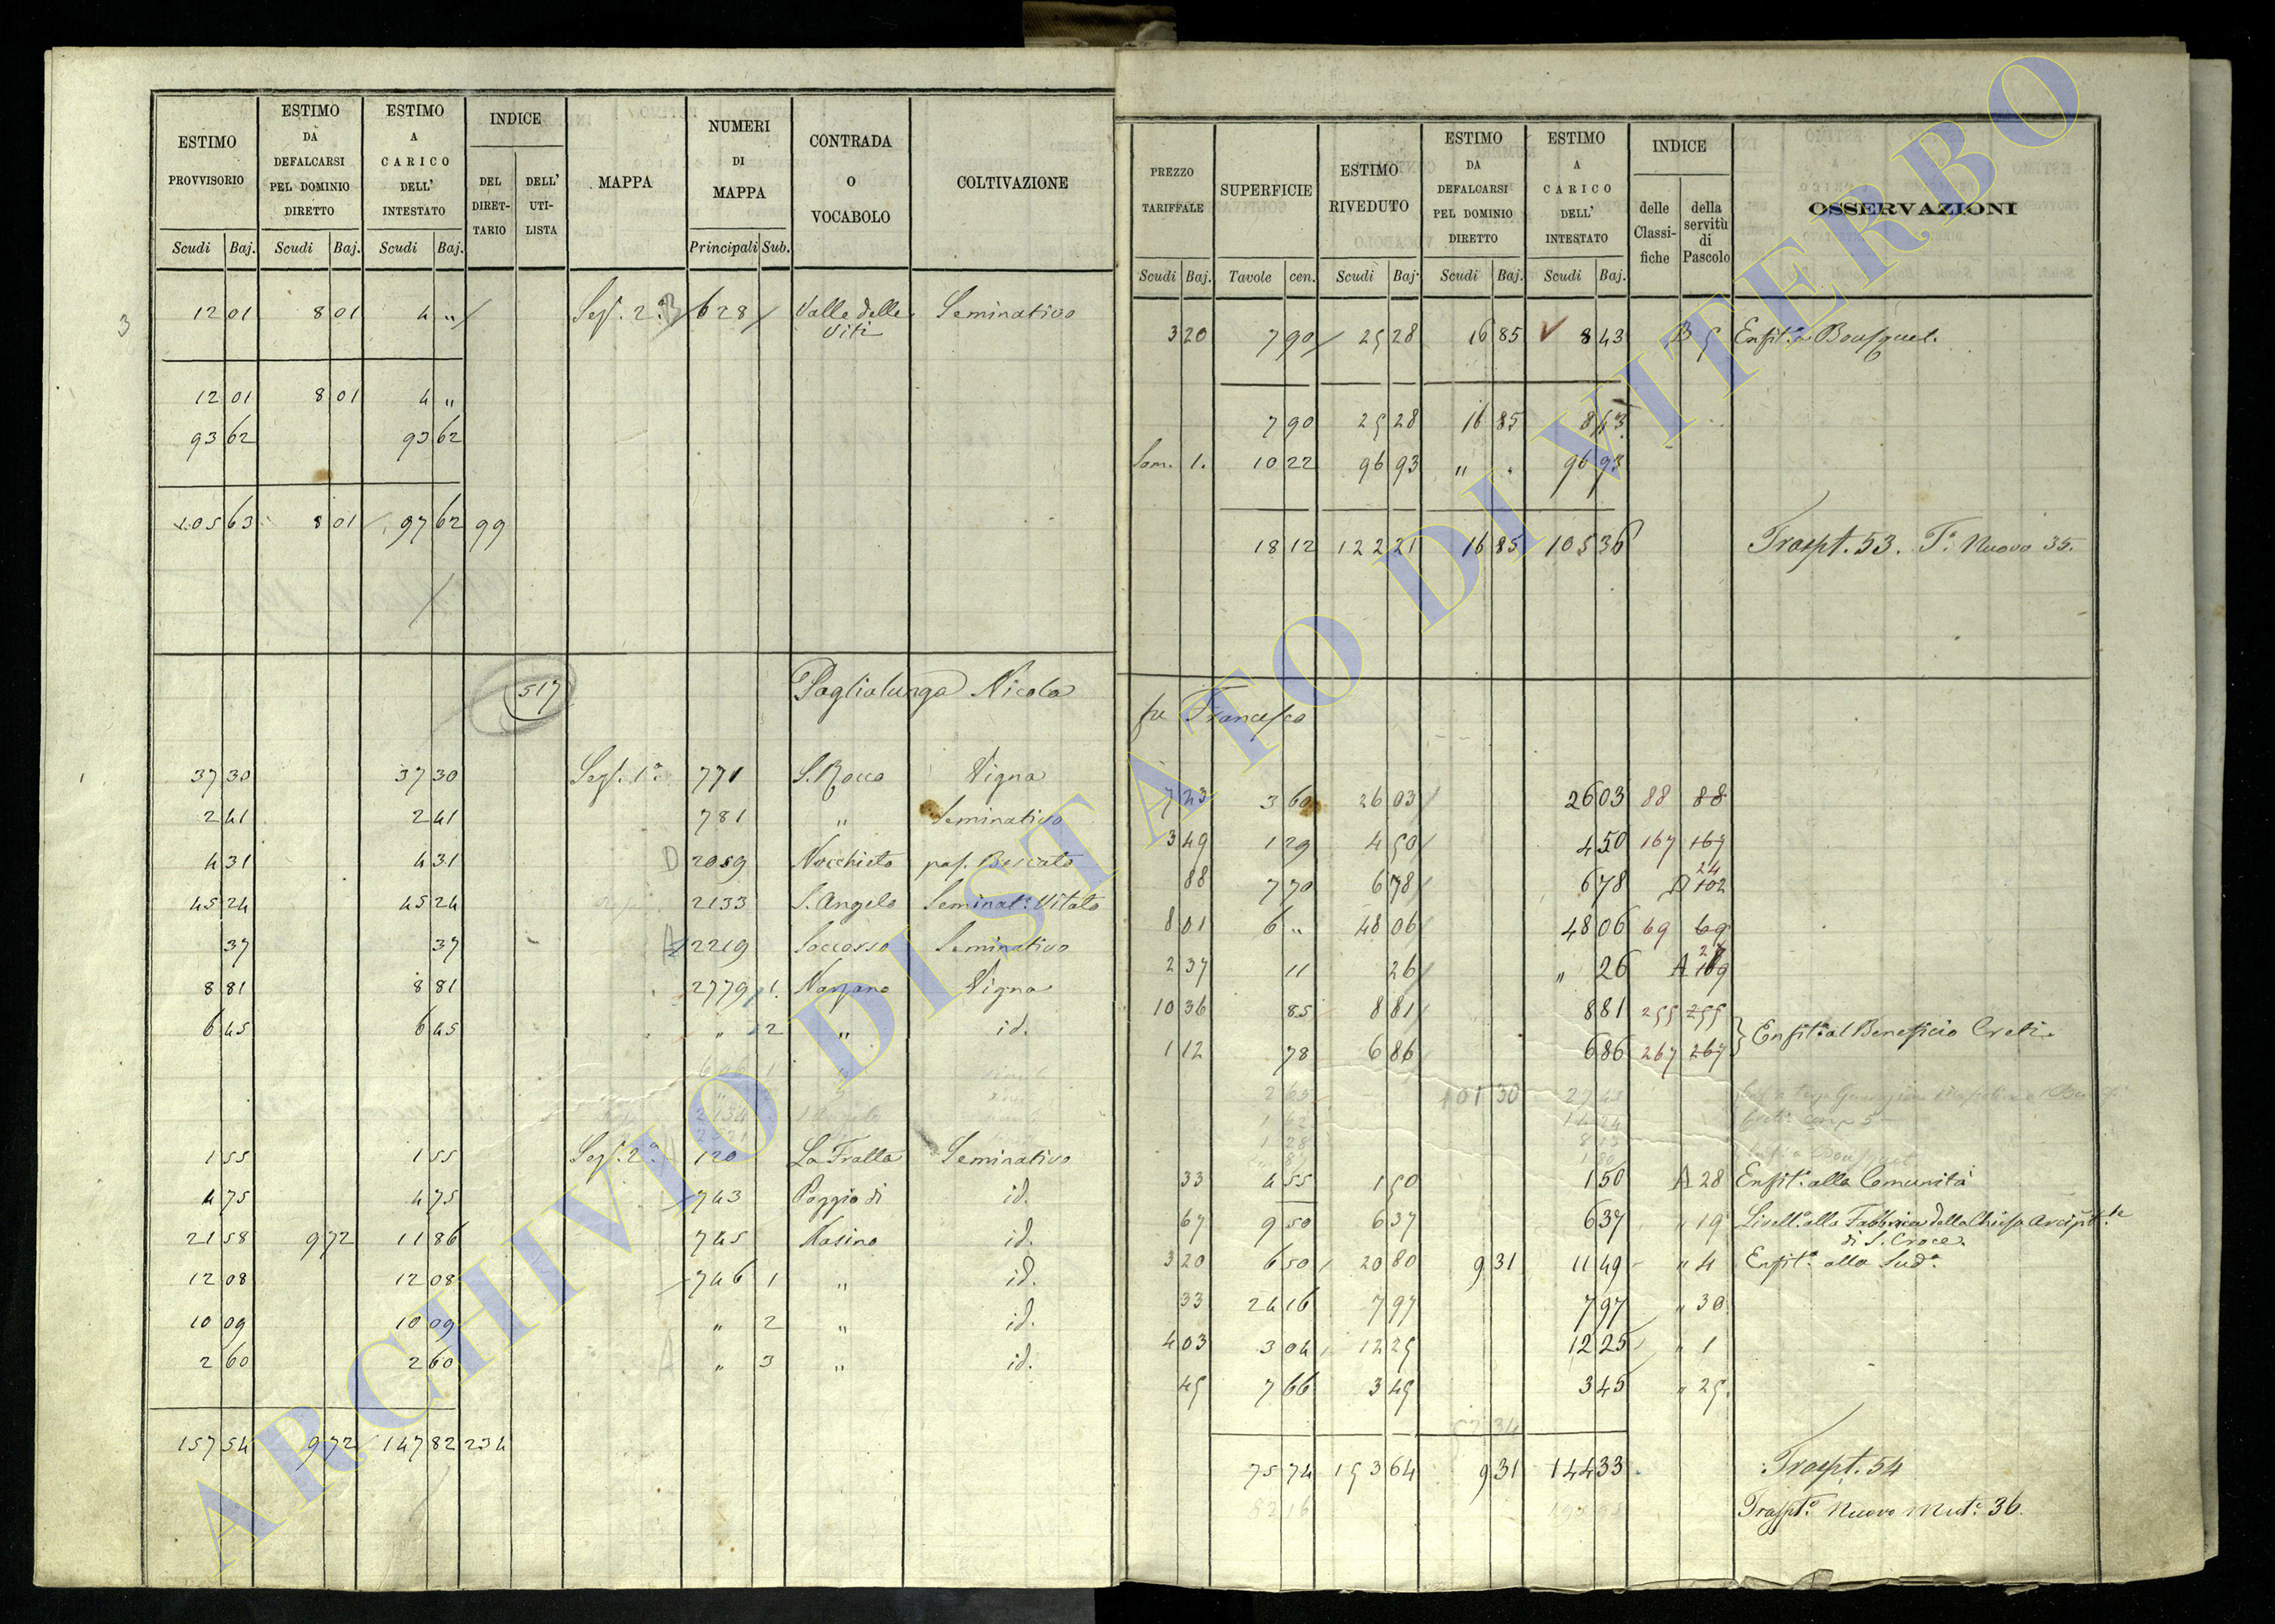 ESTIMO PROVVISORIO | ESTIMO DA DEFALCARSI PEL DOMINIO DIRETTO | ESTIMO A CARICO DELL' INTESTATO | INDICE | MAPPA | NUMERI DI MAPPA | CONTRADA O VOCABOLO | COLTIVAZIONE
DEL DIRET-TARIO | DELL' UTI-LISTA
Scudi | Baj. | Scudi | Baj. | Scudi | Baj. | Principali | Sub.
3
12 01 | 8 01 | 4 " | Sez. 2a B | 628 | Valle delle Viti | Seminativo
12 01 | 8 01 | 4 "
93 62 | 93 62
105 63 | 8 01 | 97 62 | 99
517 Paglialunga Nicola
37 30 | 37 30 | Sez. 1a | 771 | S. Rocco | Vigna
2 41 | 2 41 | 781 | " | Seminativo
4 31 | 4 31 | D | 2059 | Nocchieto | pas. Bescato
45 24 | 45 24 | 2133 | S. Angelo | Seminato Vitato
37 | 37 | A | 2219 | Soccorso | Seminativo
8 81 | 8 81 | 2779 | 1. | Vigna
6 45 | 6 45 | " | 2 | " | id.
1 55 | 1 55 | Sez. 2a | 120 | La Fratta | Seminativo
4 75 | 4 75 | 743 | Poggio di | id.
21 58 | 9 72 | 11 86 | 745 | Masino | id.
12 08 | 12 08 | 746 | 1 | " | id.
10 09 | 10 09 | " | 2 | " | id.
2 60 | 2 60 | A | " | 3 | " | id.
157 54 | 9 72 | 147 82 | 234
PREZZO TARIFFALE | SUPERFICIE | ESTIMO RIVEDUTO | ESTIMO DA DEFALCARSI PEL DOMINIO DIRETTO | ESTIMO A CARICO DELL' INTESTATO | INDICE | OSSERVAZIONI
delle Classi-fiche | della servitù di Pascolo
Scudi | Baj. | Tavole | cen. | Scudi | Baj. | Scudi | Baj. | Scudi | Baj.
3 20 | 7 90 | 25 28 | 16 85 | 8 43 | B 5 | Enfita a Bousquet.
7 90 | 25 28 | 16 85 | 8 43
Som. 1. | 10 22 | 96 93 | " | 96 93
18 12 | 122 21 | 16 85 | 105 36 | Traspt. 53. To Nuovo 35.
fu Francesco
7 23 | 3 60 | 26 03 | 26 03 | 88 | 88
3 49 | 1 29 | 4 50 | 4 50 | 167 | 167
88 | 7 70 | 6 78 | 6 78 | D | 24 102
8 01 | 6 " | 48 06 | 48 06 | 69 | 69
2 37 | 11 | 26 | " 26 | A
10 36 | 85 | 8 81 | 8 81 | 255 | 255
1 12 | 78 | 6 86 | 6 86 | 267 | 267 | Enfita al Beneficio Creti.
101 30
33 | 4 55 | 1 50 | 1 50 | A 28 | Enfita alla Comunità
67 | 9 50 | 6 37 | 6 37 | " 19 | Livello alla Fabbrica della Chiesa Arcipte
di S. Croce.
3 20 | 6 50 | 20 80 | 9 31 | 11 49 | " 4 | Enfita alla Suda
33 | 24 16 | 7 97 | 7 97 | " 30
4 03 | 3 04 | 12 25 | 12 25 | " 1
45 | 7 66 | 3 45 | 3 45 | " 25.
75 74 | 153 64 | 9 31 | 144 33 | Traspt. 54
82 16 | Traspto Nuovo Muta 36.
ARCHIVIO DI STATO DI VITERBO